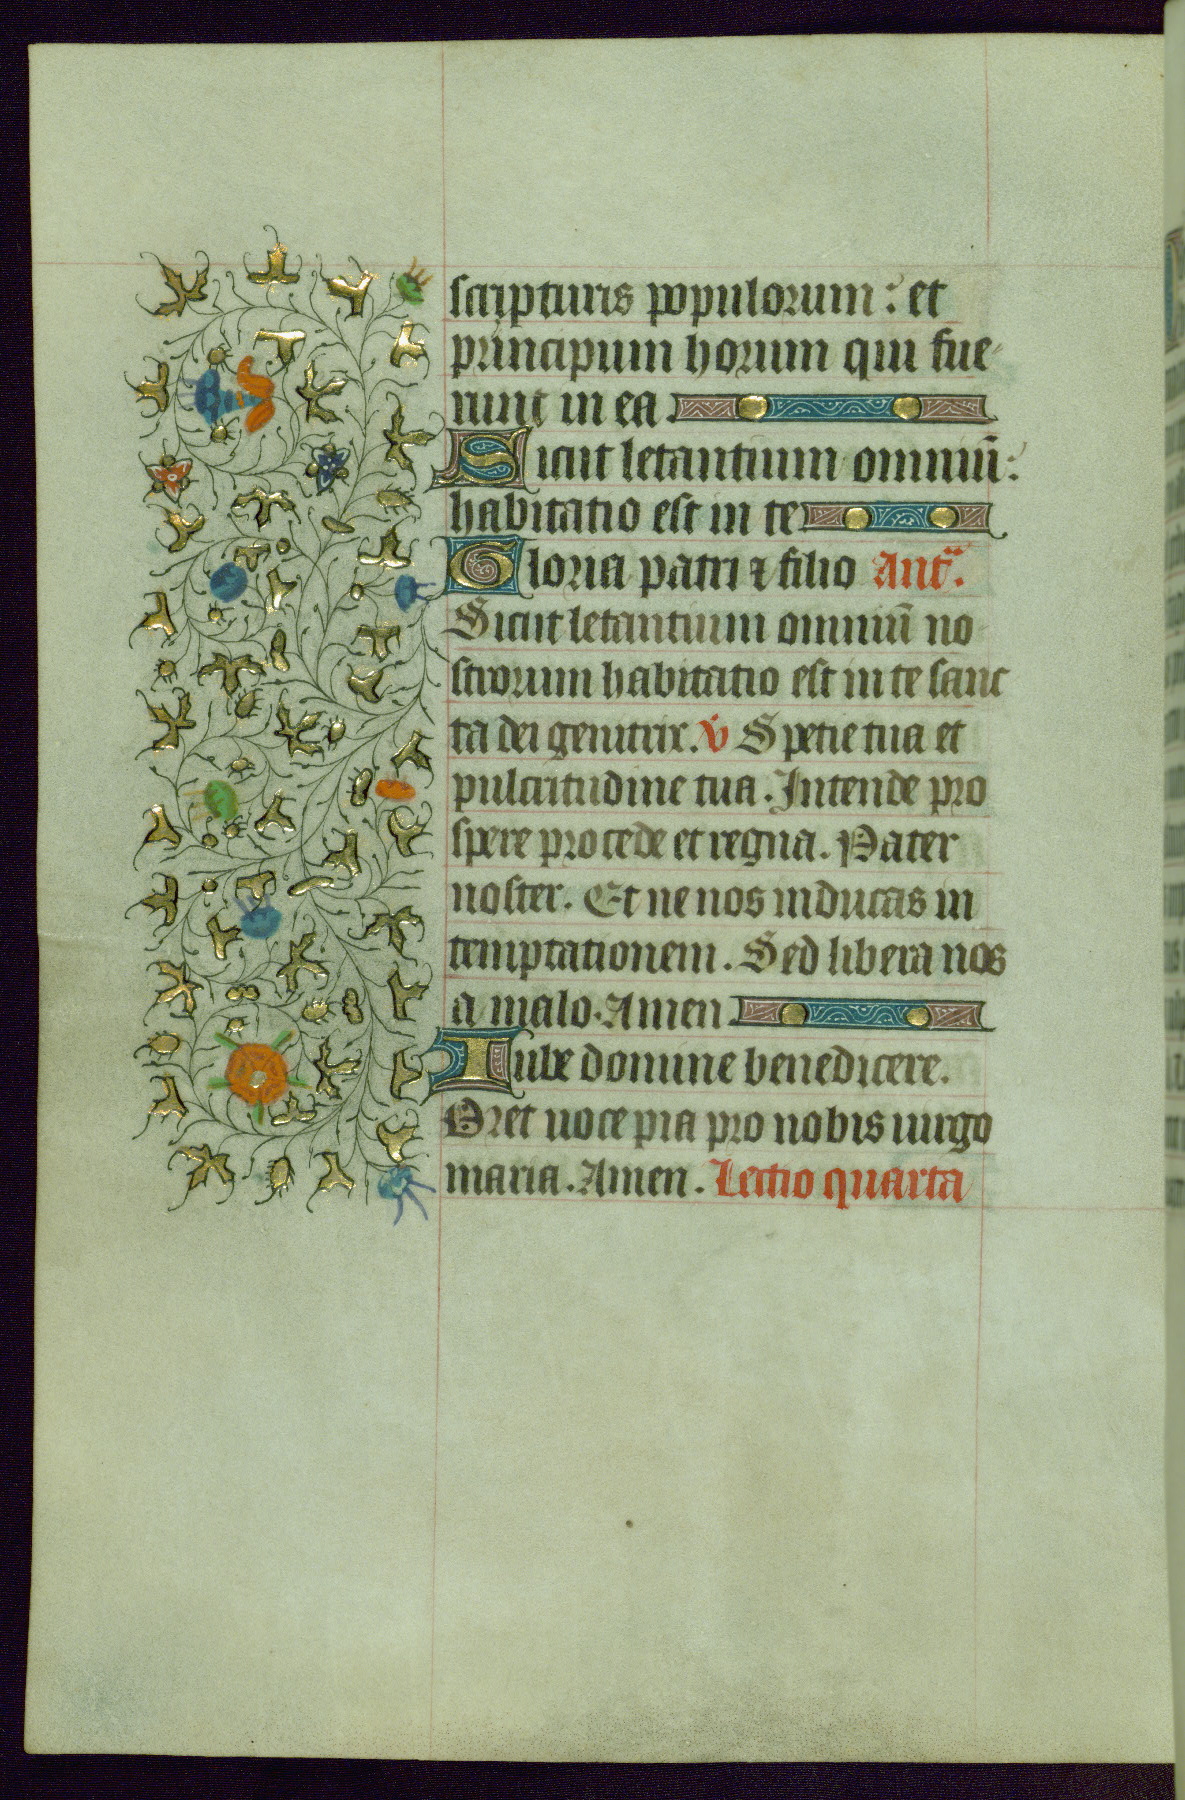 scripturis populorum : et
principum horum qui fue
runt in ea
Sicut letantium omniū :
habitatio est in te
Gloria patri ⁊ filio Ant̄.
Sicut letantium omniū no
strorum habitatio est in te sanc
ta dei genitrix. v̇ Spetie tua et
pulcritudine tua. Intende pro
spere procede et regna. Pater
noster. Et ne nos inducas in
temptationem. Sed libera nos
a malo. Amen
Iube domine benedicere.
Oret uoce pia pro nobis uirgo
maria. Amen. Lectio quarta